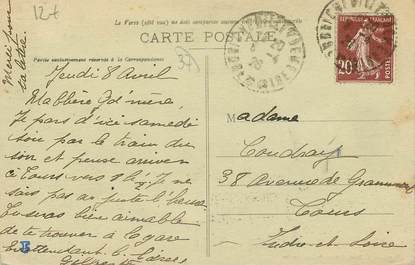 12 t
Le Verso (côté vue) ne doit pas comporter
CARTE POSTALE
Partie exclusivement réservée à la Correspondance
Merci pour
ta lettre.
Jeudi 8 Avril
Ma chère
Je pars d'ici samedi
soir par le train du
soir et pense arriver
à Tours vers Je ne
sais pas au juste l'heure
Tu seras bien aimable
de te trouver à la gare
En attendant
Madame
Coudray
38 Avenue de Grammont
Tours
Indre-et-Loire
REPUBLIQUE FRANÇAISE
20
POSTES